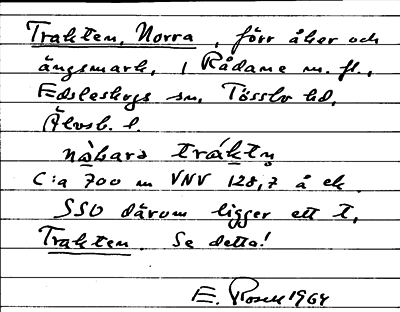 Trakten, Norra, förr åker och
ängsmark, i Rådane m. fl.,
Edsleskogs sn, Tössbo hd,
Älvsb. l.
nàbara tráktn̥
C:a 700 m VNV 128,7 å ek.
SSO därom ligger ett T,
Trakten. Se detta!
E. Rosell 1964